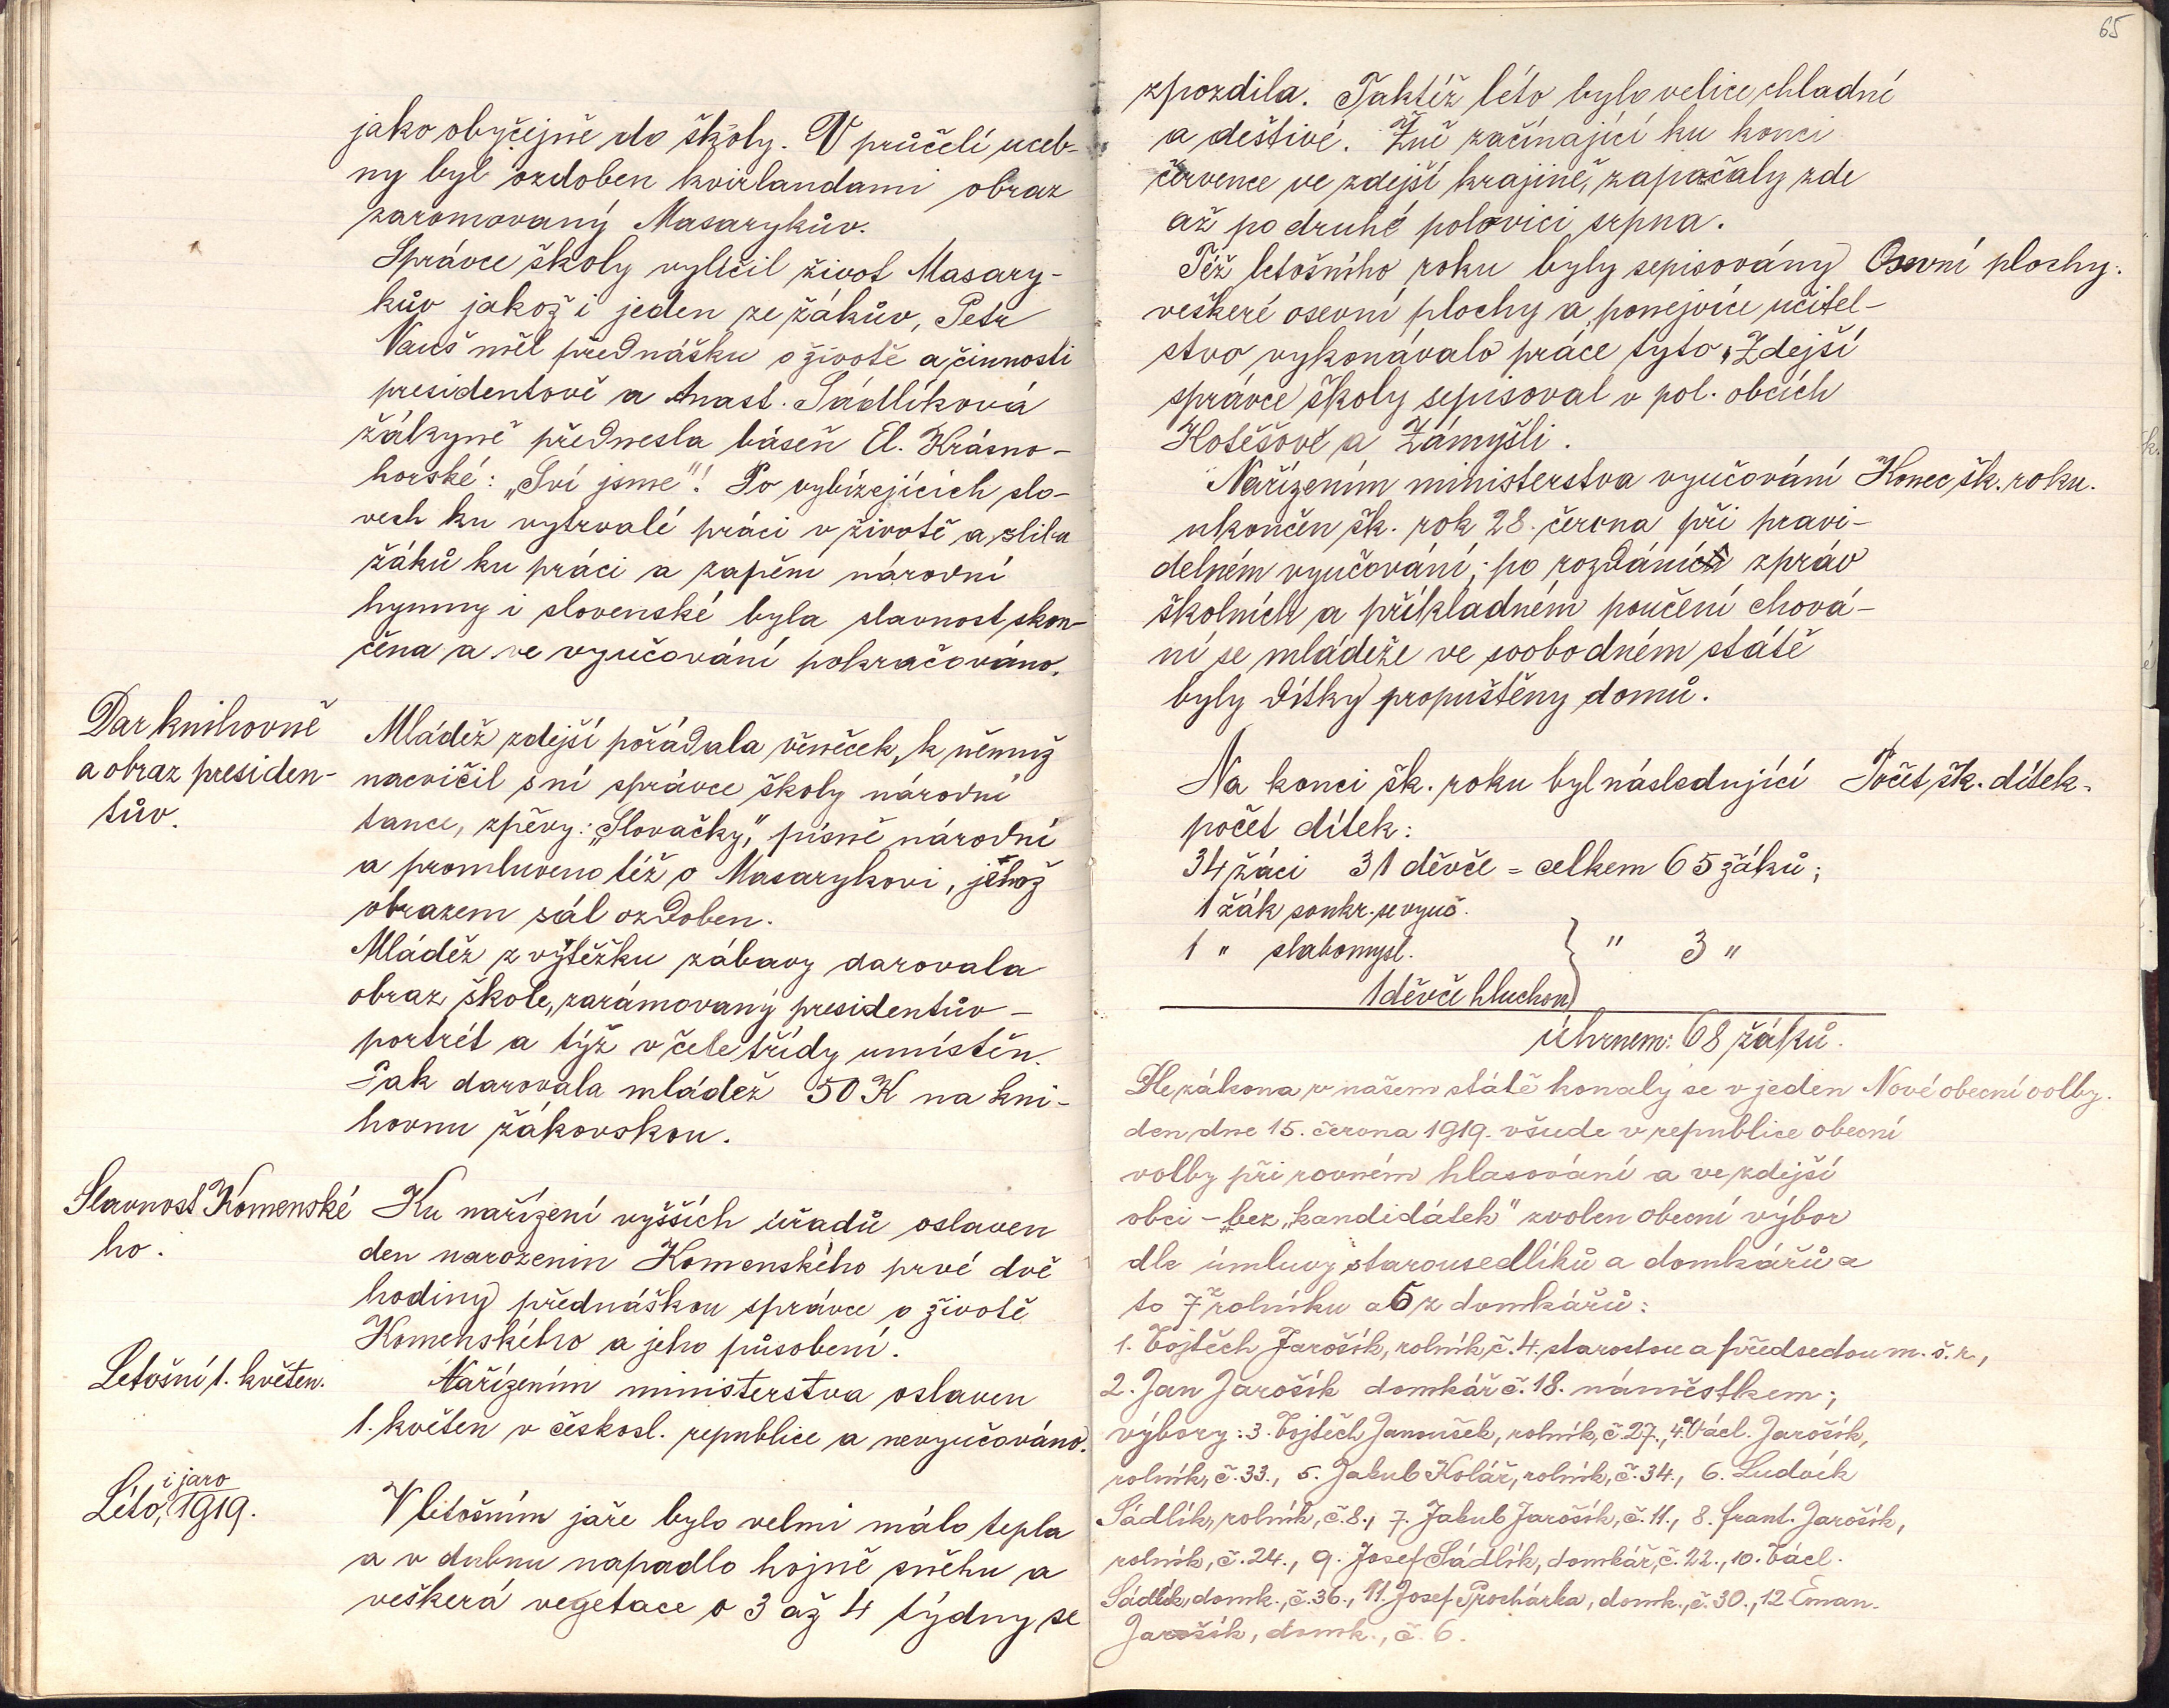 jako obyčejně do školy. V průčelí učeb-
ny byl ozdoben kvirlandami obraz
zaromovaný Masarykův.
Správce školy vylíčil život Masary-
kův jakož i jeden ze žákův, Petr
Vauš měl přednášku o životě a činnosti
presidentově a Anast. Sádlíková
žákyně přednesla báseň El. Krásno-
horské: „Sví jsme"! Po vybízejících slo-
vech ku vytrvalé práci v životě a slibu
žáků ku práci a zapěm národní
hymny i slovenské byla slavnost skon-
čena a ve vyučování pokračováno.
Dar knihovně
a obraz presiden-
tův.
Mládež zdejší pořádala věneček, k němuž
nacvičil s ní správce školy národní
tance, zpěvy: „Slovačky," písně národní
a promluveno též o Masarykovi, jehož
obrazem sál ozdoben.
Mládež z výtěžku zábavy darovala
obraz škole, zarámovaný presidentův-
portrét a týž v čele třídy umístěn.
Pak darovala mládež 50 K na kni-
hovnu žákovskou.
Slavnost Komenské
ho.
Ku nařízení vyšších úřadů oslaven
den narozenin Komenského prvé dvě
hodiny přednáškou správce o životě
Komenského a jeho působení.
Letošní 1. květen.
Nařízením ministerstva oslaven
1. květen v českosl. republice a nevyučováno.
i jaro
Léto, 1919.
V letošním jaře bylo velmi málo tepla
a v dubnu napadlo hojně sněhu a
veškerá vegetace o 3 až 4 týdny se
65
zpozdila. Taktéž léto bylo velice chladné
a deštivé. Žně začínající ku konci
července ve zdejší krajině, zapačaly zde
až po druhé polovici srpna.
Též letošního roku byly sepisovány
Osevní plochy.
veškeré osevní plochy a ponejvíce učitel-
stvo vykonávalo práce tyto. Zdejší
správce školy sepisoval v pol. obcích
Hotěšově a Zámyšli.
Nařízením ministerstva vyučování
Konec šk. roku.
ukončen šk. rok 28. června při pravi-
delném vyučování; po rozdáních zpráv
školních a příkladném poučení chová-
ní se mládeže ve svobodném státě
byly dítky propuštěny domů.
Na konci šk. roku byl následující
Počet šk. dítek.
počet dítek:
34 žáci 31 děvče = celkem 65 žáků;
1 žák soukr. se vyuč.
1 " slabomysl. } " 3 "
1 děvče hluchon.
Úhrnem: 68 žáků.
Dle zákona v našem státě konaly se v jeden
Nové obecní volby.
den, dne 15. června 1919. všude v republice obecní
volby při rovném hlasování a ve zdejší
obci – bez „kandidátek" zvolen obecní výbor
dle úmluvy starousedlíků a domkářů a
to 7 z rolníku a 5 z domkářů:
1. Vojtěch Jarošík, rolník, č. 4. starostou a předsedou m. š. r.,
2. Jan Jarošík domkář č. 18. náměstkem;
výbory: 3. Vojtěch Janoušek, rolník, č. 27., 4. Václ. Jarošík,
rolník, č. 33., 5. Jakub Kolář, rolník, č. 34., 6. Ludvík
Sádlík, rolník, č. 8., 7. Jakub Jarošík, č. 11., 8. Frant. Jarošík,
rolník, č. 24., 9. Josef Sádlík, domkář, č. 22., 10. Václ.
Sádlík, domk., č. 36., 11. Josef Procházka, domk., č. 30., 12 Eman.
Jarošík, domk., č. 6.